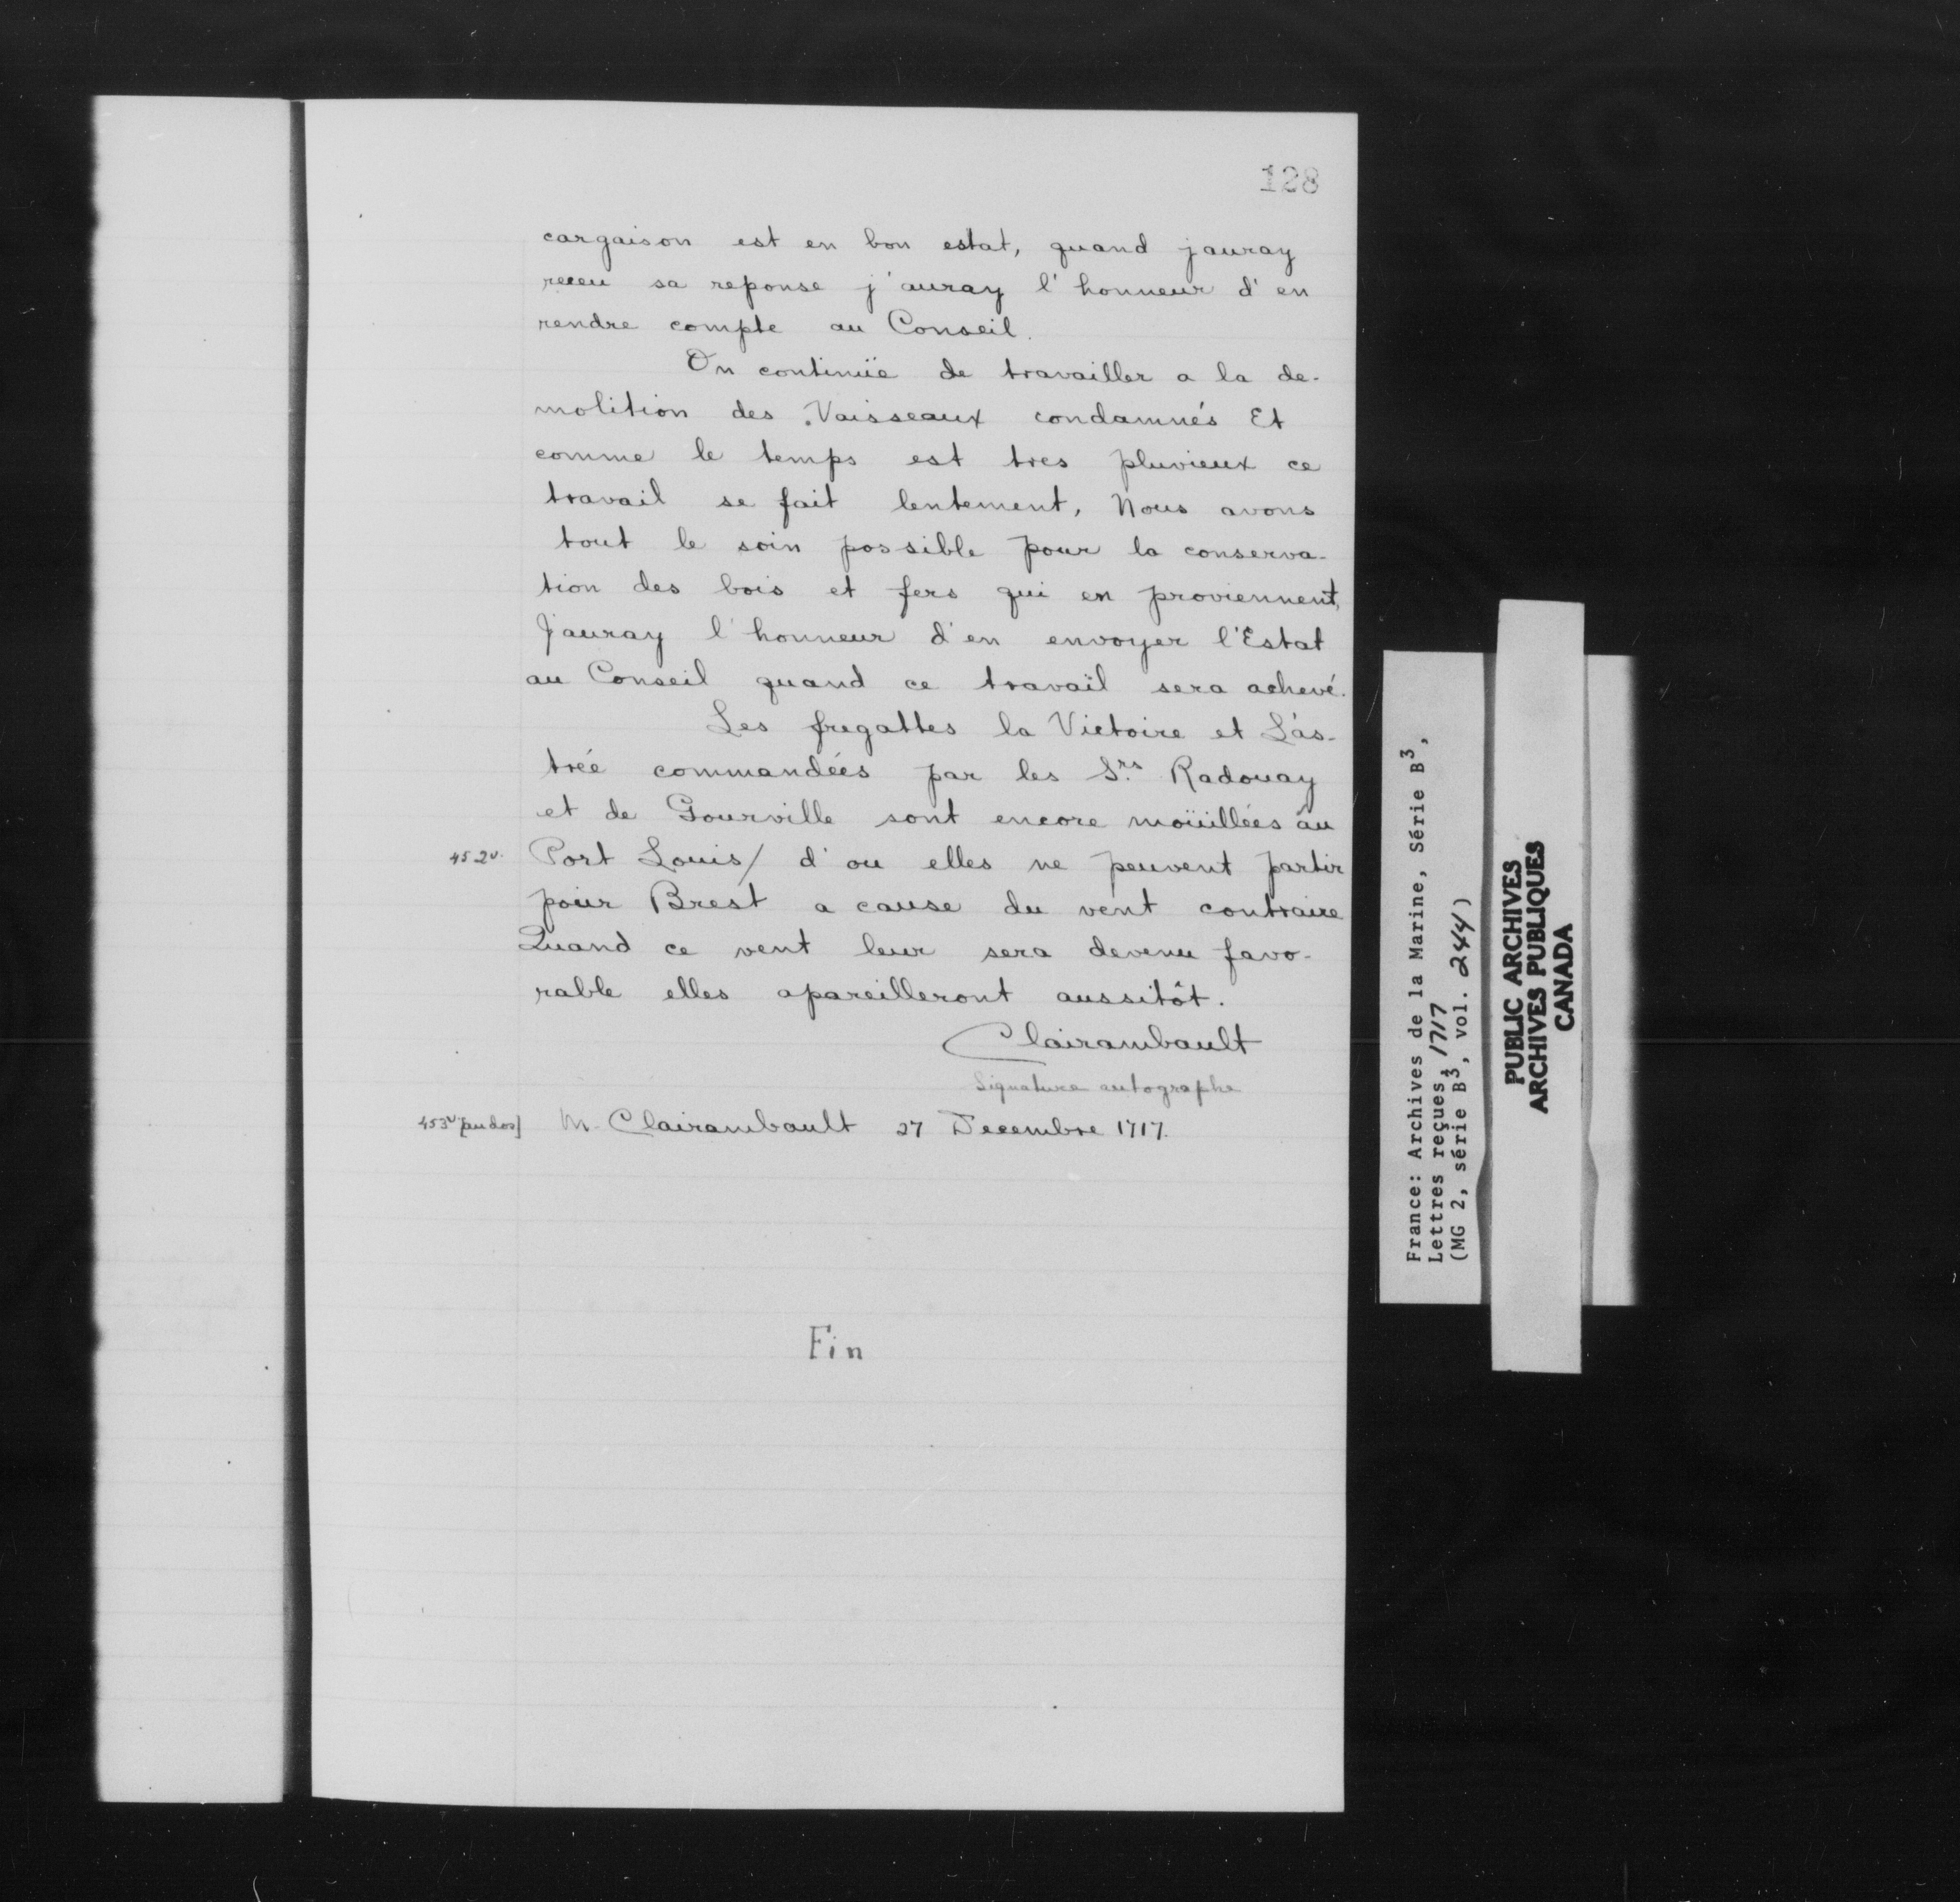 128
cargaison est en bon estat, quand jauray
receu sa reponse j'auray l'honneur d'en
rendre compte au Conseil.
On continüe de travailler a la de-
molition des Vaisseaux condamnés Et
comme le temps est tres pluvieux ce
travail se fait lentement, Nous avons
tout le soin possible pour la conserva-
tion des bois et fers qui en proviennent,
J'auray l'honneur d'en envoyer l'Estat
au Conseil quand ce travail sera achevé.
Les fregattes la Victoire et L'as-
trée commandées par les Srs Radouay
et de Gourville sont encore moüillées au
452v. Port Louis/ d'ou elles ne peuvent partir
pour Brest a cause du vent contraire
Quand ce vent leur sera devenu favo-
rable elles apareilleront aussitôt.
Clairambault
Signature autographe
453v [au dos] M. Clairambault 27 Decembre 1717.
Fin
France: Archives de la Marine, Série B3,
Lettres reçues, 1717
(MG 2, série B3, vol. 244)
PUBLIC ARCHIVES
ARCHIVES PUBLIQUES
CANADA